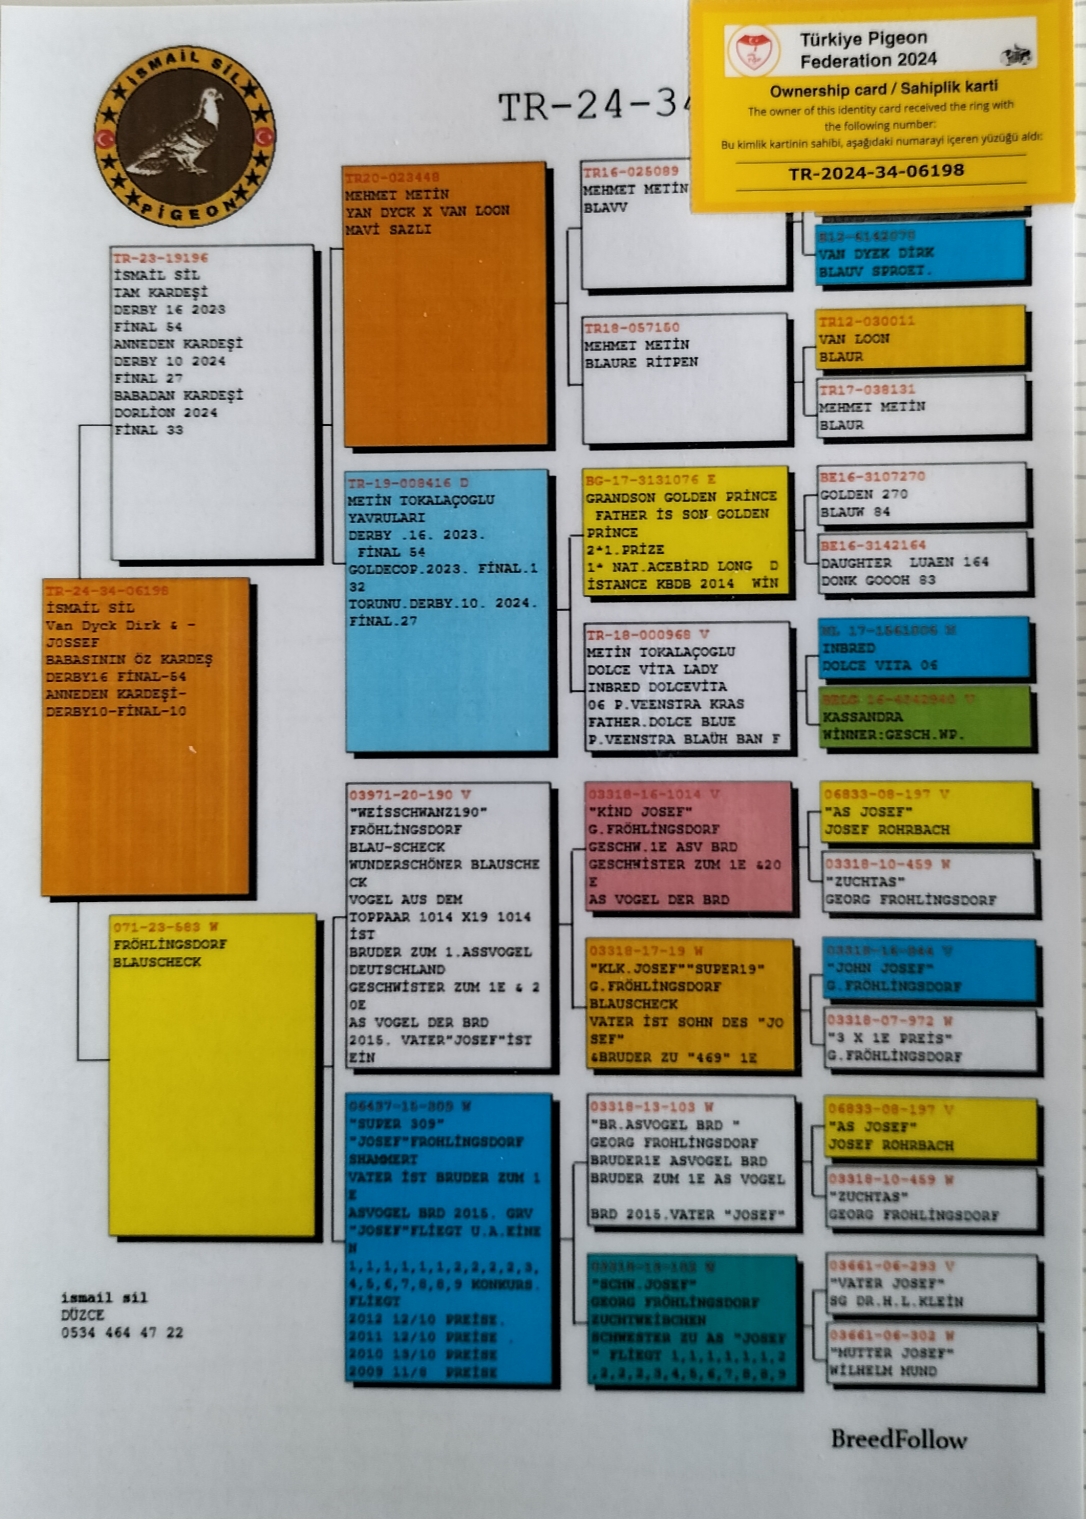 İSMAİL SİL
PİGEON
TR-24-34
Türkiye Pigeon
Federation 2024
Ownership card / Sahiplik karti
The owner of this identity card received the ring with
the following number:
Bu kimlik kartinin sahibi, aşağıdaki numarayi içeren yüzüğü aldı:
TR-2024-34-06198
TR-24-34-06198
İSMAİL SİL
Van Dyck Dirk & -
JOSSEF
BABASININ ÖZ KARDEŞ
DERBY16 FİNAL-54
ANNEDEN KARDEŞİ-
DERBY10-FİNAL-10
TR-23-19196
İSMAİL SİL
TAM KARDEŞİ
DERBY 16 2023
FİNAL 54
ANNEDEN KARDEŞİ
DERBY 10 2024
FİNAL 27
BABADAN KARDEŞİ
DORLİON 2024
FİNAL 33
071-23-583 W
FRÖHLİNGSDORF
BLAUSCHECK
TR20-023448
MEHMET METİN
YAN DYCK X VAN LOON
MAVİ SAZLI
TR-19-008416 D
METİN TOKALAÇOGLU
YAVRULARI
DERBY .16. 2023.
FİNAL 54
GOLDECOP.2023. FİNAL.1
32
TORUNU.DERBY.10. 2024.
FİNAL.27
03971-20-190 V
"WEİSSCHWANZ190"
FRÖHLİNGSDORF
BLAU-SCHECK
WUNDERSCHÖNER BLAUSCHE
CK
VOGEL AUS DEM
TOPPAAR 1014 X19 1014
İST
BRUDER ZUM 1.ASSVOGEL
DEUTSCHLAND
GESCHWİSTER ZUM 1E & 2
0E
AS VOGEL DER BRD
2015. VATER"JOSEF"İST
EİN
06437-15-309 W
"SUPER 309"
"JOSEF"FROHLİNGSDORF
SHAMMERT
VATER İST BRUDER ZUM 1
E
ASVOGEL BRD 2015. GRV
"JOSEF"FLİEGT U.A.EİNE
N
1,1,1,1,1,1,2,2,2,2,3,
4,5,6,7,8,8,9 KONKURS.
FLİEGT
2012 12/10 PREİSE.
2011 12/10 PREİSE .
2010 13/10 PREİSE
2009 11/8 PREİSE
TR16-025089
MEHMET METİN
BLAVV
TR18-057150
MEHMET METİN
BLAURE RİTPEN
BG-17-3131076 E
GRANDSON GOLDEN PRİNCE
FATHER İS SON GOLDEN
PRİNCE
2*1.PRİZE
1* NAT.ACEBİRD LONG D
İSTANCE KBDB 2014 WİN
TR-18-000968 V
METİN TOKALAÇOGLU
DOLCE VİTA LADY
INBRED DOLCEVİTA
06 P.VEENSTRA KRAS
FATHER.DOLCE BLUE
P.VEENSTRA BLAÜH BAN F
03318-16-1014 V
"KİND JOSEF"
G.FRÖHLİNGSDORF
GESCHW.1E ASV BRD
GESCHWİSTER ZUM 1E &20
E
AS VOGEL DER BRD
03318-17-19 W
"KLK.JOSEF""SUPER19"
G.FRÖHLİNGSDORF
BLAUSCHECK
VATER İST SOHN DES "JO
SEF"
&BRUDER ZU "469" 1E
03318-13-103 W
"BR.ASVOGEL BRD "
GEORG FROHLİNGSDORF
BRUDER1E ASVOGEL BRD
BRUDER ZUM 1E AS VOGEL
BRD 2015.VATER "JOSEF"
03318-13-102 W
"SCHW.JOSEF"
GEORG FRÖHLİNGSDORF
ZUCHTWEİBCHEN
SCHWESTER ZU AS "JOSEF
" FLİEGT 1,1,1,1,1,1,2
,2,2,2,3,4,5,6,7,8,8,9
VAN DYEK DİRK
BLAUV SPROET.
TR12-030011
VAN LOON
BLAUR
TR17-038131
MEHMET METİN
BLAUR
BE16-3107270
GOLDEN 270
BLAUW 84
BE16-3142164
DAUGHTER LUAEN 164
DONK GOOOH 83
INBRED
DOLCE VITA 06
KASSANDRA
WİNNER:GESCH.WP.
06833-08-197 V
"AS JOSEF"
JOSEF ROHRBACH
03318-10-459 W
"ZUCHTAS"
GEORG FROHLİNGSDORF
03318-16-844 V
"JOHN JOSEF"
G.FRÖHLİNGSDORF
03318-07-972 W
"3 X 1E PREİS"
G.FRÖHLİNGSDORF
06833-08-197 V
"AS JOSEF"
JOSEF ROHRBACH
03318-10-459 W
"ZUCHTAS"
GEORG FROHLİNGSDORF
03661-06-293 V
"VATER JOSEF"
SG DR.H.L.KLEİN
03661-06-302 W
"MUTTER JOSEF"
WİLHELM MUND
ismail sil
DÜZCE
0534 464 47 22
BreedFollow